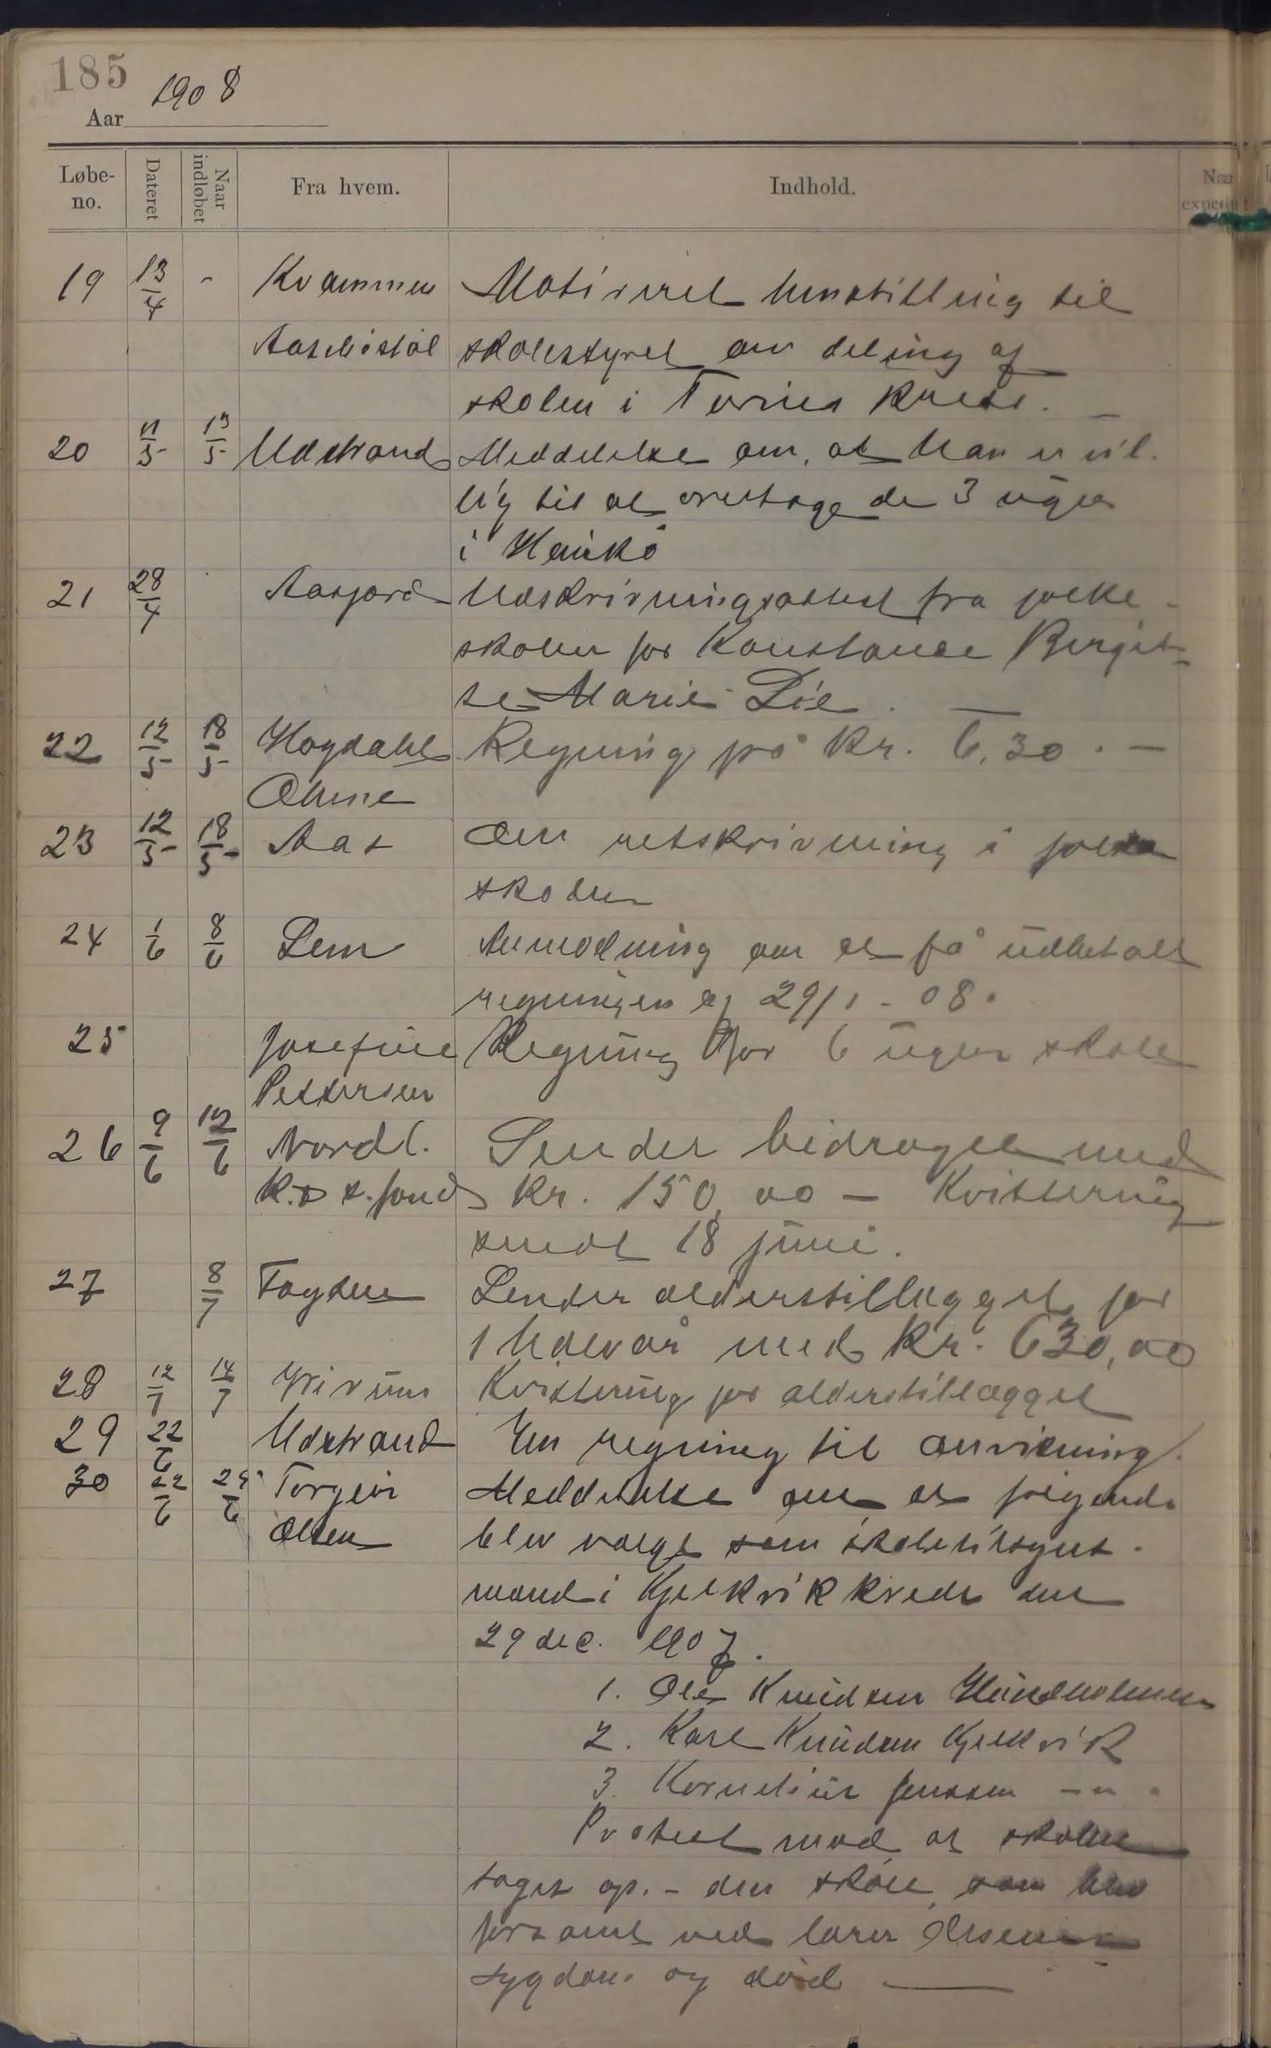 185
Aar 1908
Løbe-no. Dateret Naar indløbet Fra hvem. Indhold.
19 13/4 - Kvammen Motiveret henstilling til
skolestyret om deling af
skolen i Tørnes kreds. —
20 11/5 13/5 Udstrand Meddelelse om, at han er vil-
lig til at overtage de 3 uger
i Haukø
21 28/4 Aasjord Udskrivningsattest fra folke-
skolen for Konstanse Bergit-
te Marie Lie. —
22 12/5 18/5 Hogdahl Regning på kr. 6,30. —
Ohme
23 12/5 18/5 Aas Om retskrivning i folke
skolen
24 1/6 8/6 Lem Anmodning om at få udbetalt
regningen af 29/1 - 08.
25 Josefine Regning for 6 ugers skole
Pettersen
26 9/6 12/6 Nordl. Sender bidraget med
k. s. fond kr. 150,00 — Kvittering
sendt 18 juni.
27 8/7 Fogden Sender alderstillægget for
1 halvår med kr. 630,00
28 12/7 14/7 Kvittering for alderstillægget
29 22/6 Udstrand En regning til anvisning.
30 22/6 24/6 Torgeir Meddelelse om at følgende
Olsen blev valgt som skoletilsyns-
mænd i Kjelkvik kreds den
29 dec. 1907.
1. Ole Knudsen Hundholmen
2. Karl Knudsen Kjelkvik
3. Kornelius Jenssen —"—
Protest mod at skolen
tages op. - den skole, som blev
forsømt ved lærer Olsens
sygdom og død —